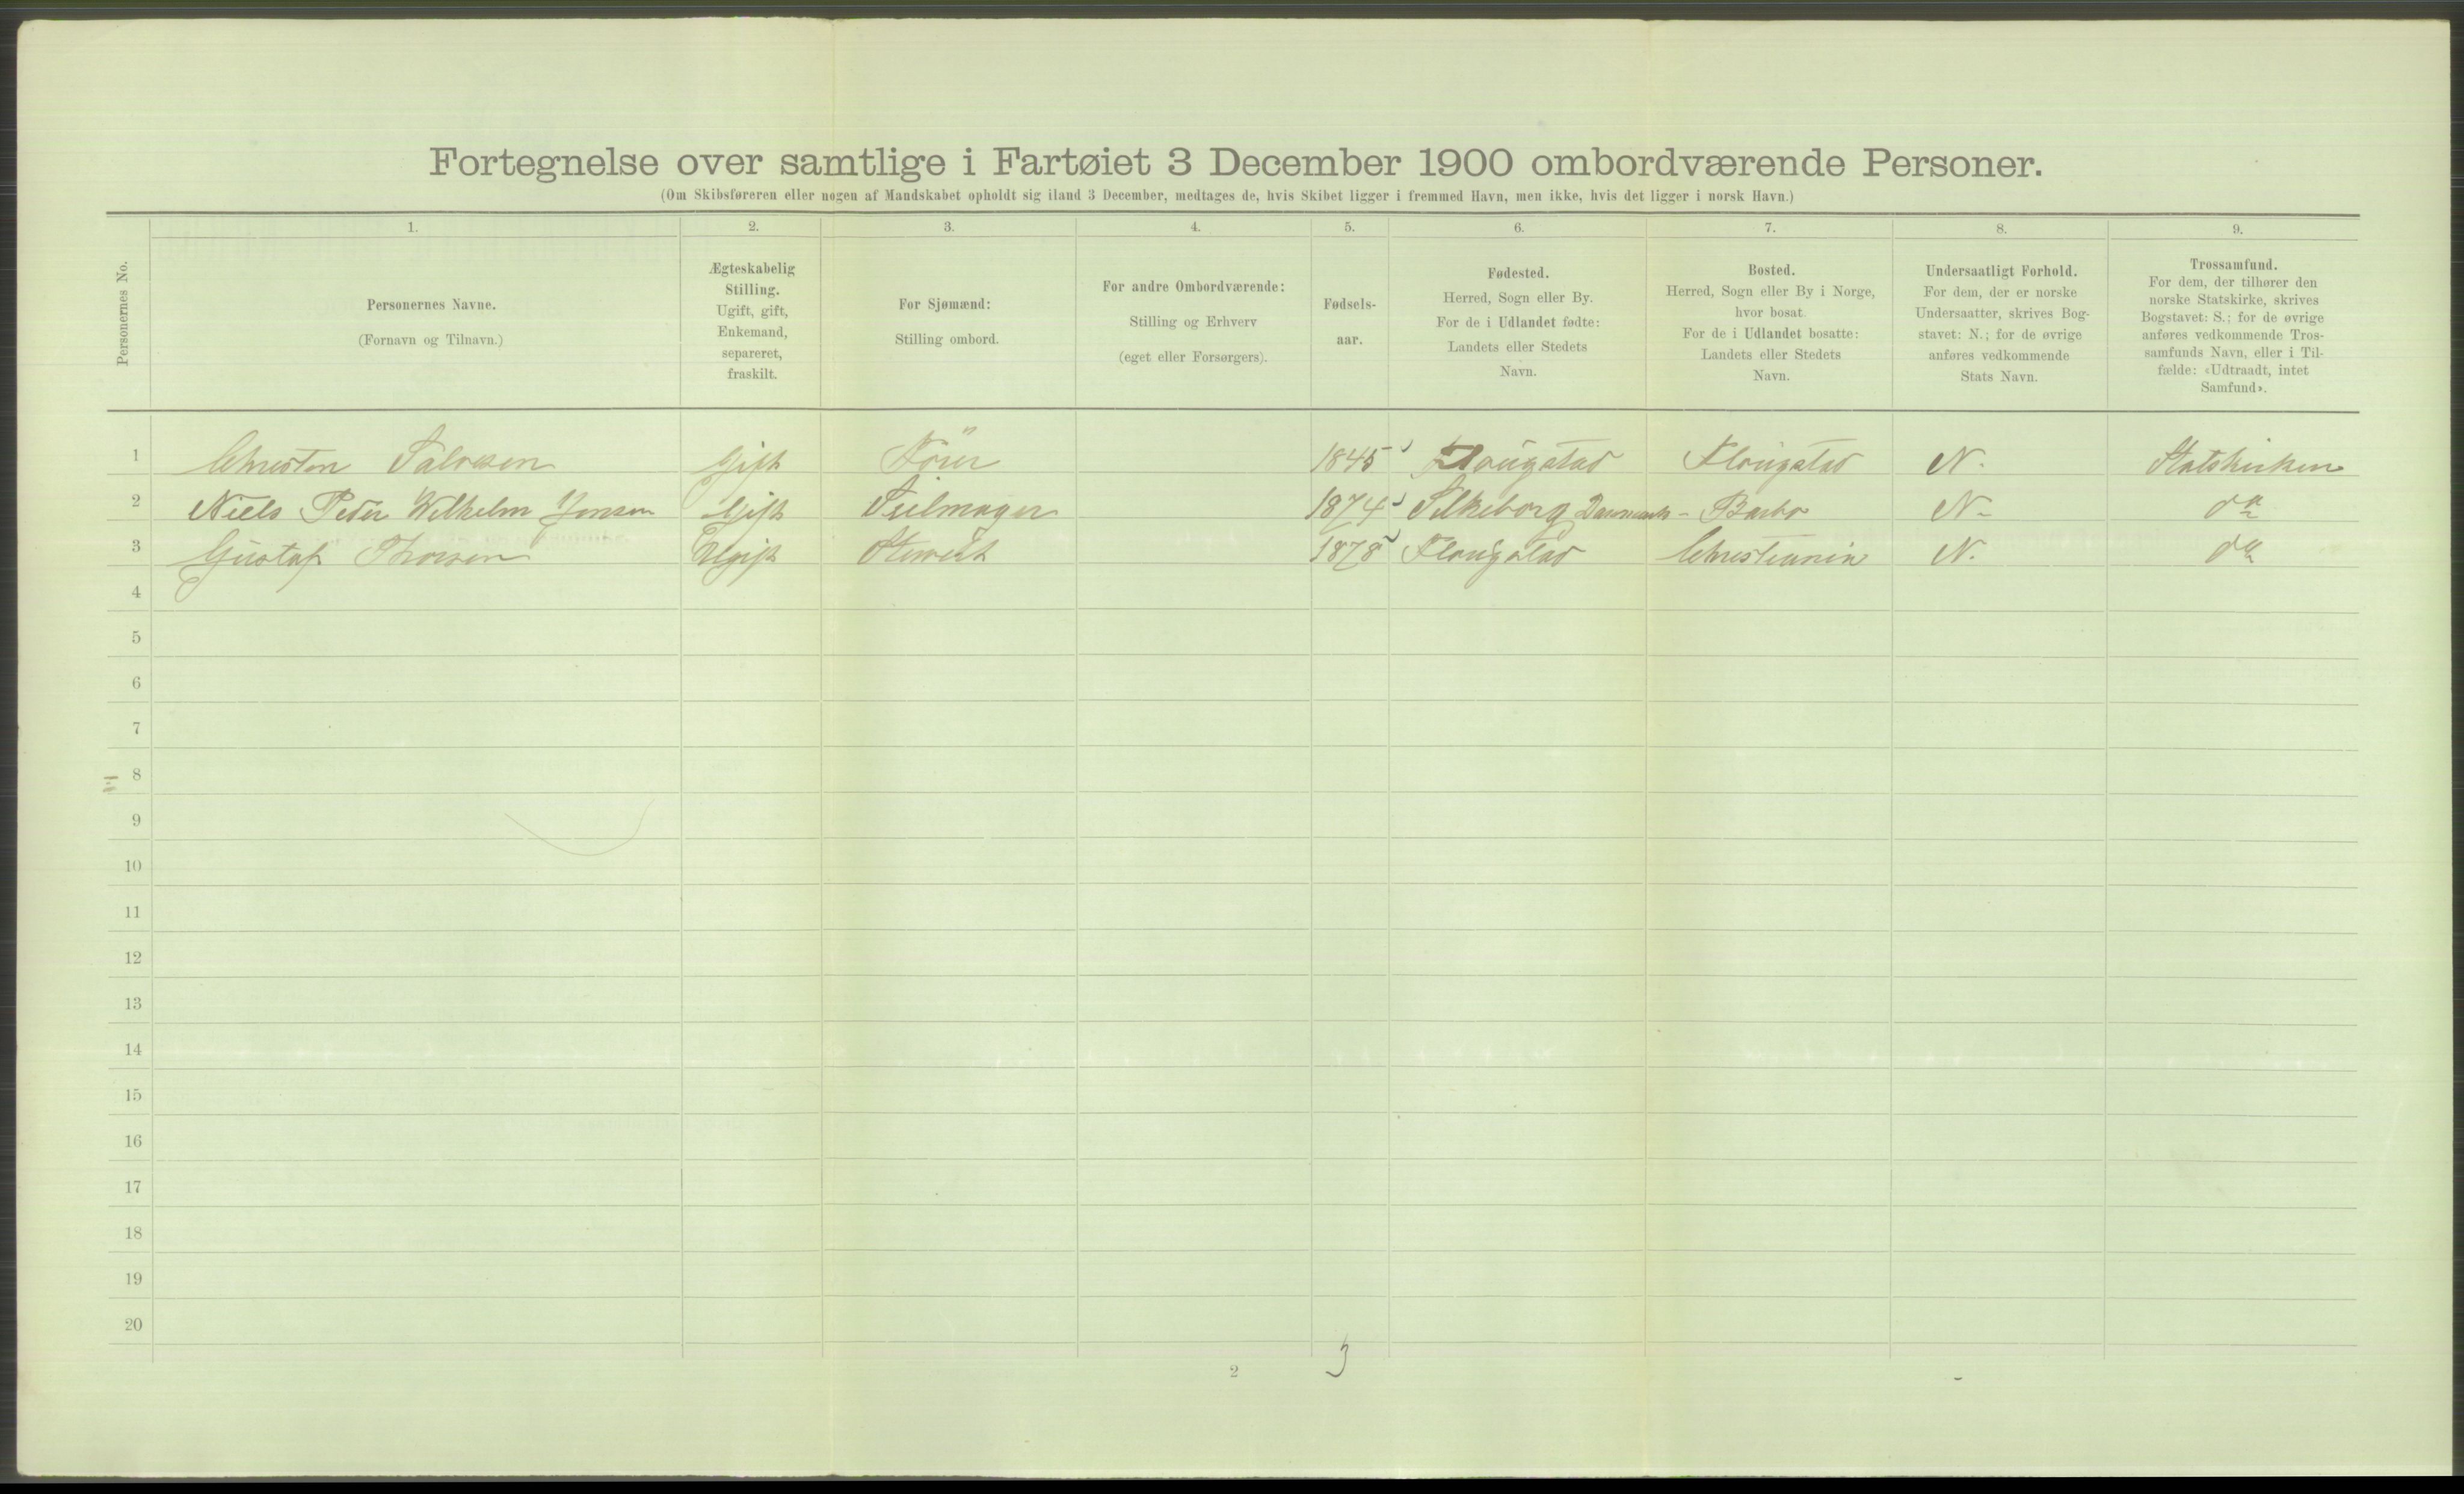 Fortegnelse over samtlige i Fartøiet 3 December 1900 ombordværende Personer.
(Om Skibsføreren eller nogen af Mandskabet opholdt sig iland 3 December, medtages de, hvis Skibet ligger i fremmed Havn, men ikke, hvis det ligger i norsk Havn.)
1. 2. 3. 4. 5. 6. 7. 8. 9.
Personernes No.
Personernes Navne.
(Fornavn og Tilnavn.)
Ægteskabelig
Stilling.
Ugift, gift,
Enkemand,
separeret,
fraskilt.
For Sjømænd:
Stilling ombord.
For andre Ombordværende:
Stilling og Erhverv
(eget eller Forsørgers).
Fødsels-
aar.
Fødested.
Herred, Sogn eller By.
For de i Udlandet fødte:
Landets eller Stedets
Navn.
Bosted.
Herred, Sogn eller By i Norge,
hvor bosat.
For de i Udlandet bosatte:
Landets eller Stedets
Navn.
Undersaatligt Forhold.
For dem, der er norske
Undersaatter, skrives Bog-
stavet: N.; for de øvrige
anføres vedkommende
Stats Navn.
Trossamfund.
For dem, der tilhører den
norske Statskirke, skrives
Bogstavet: S.; for de øvrige
anføres vedkommende Tros-
samfunds Navn, eller i Til-
fælde: «Udtraadt, intet
Samfund».
1 Christen Salvesen Gift Förer 1845 Flaugstad Flaugstad N. Statskirken
2 Niels Peder Wilhelm Jensen Gift Seilmager 1874 Silkeborg Danmark - Barbo N- do
3 Gustaf Thorsen Ugift Stewert 1878 Flaugstad Christiania N. do
4
5
6
7
8
9
10
11
12
13
14
15
16
17
18
19
20
2 3